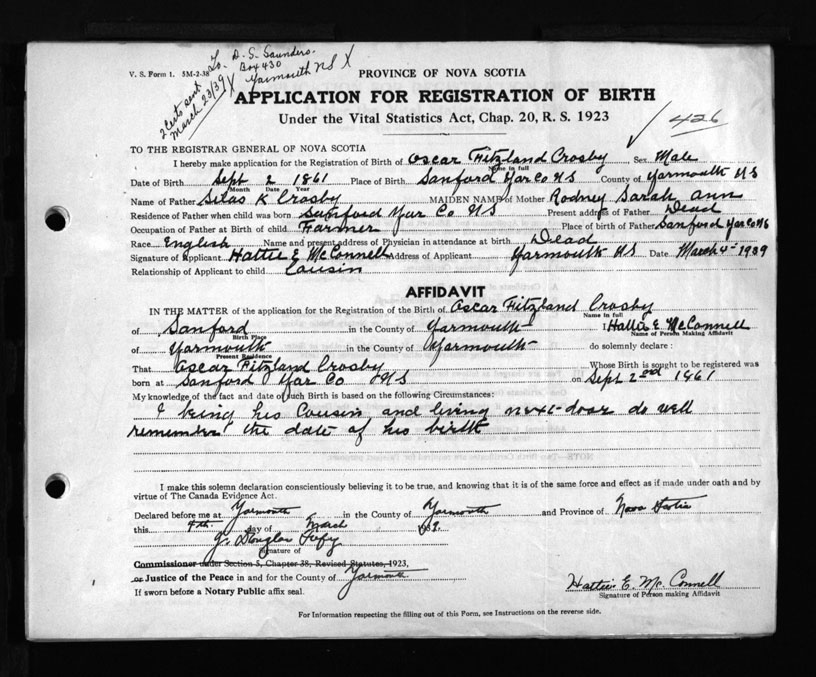 V. S. Form 1. 5M-2-38
2 Certs sent
March 23/39
To. D. S. Saunders.
Box 430
Yarmouth NS X
PROVINCE OF NOVA SCOTIA
APPLICATION FOR REGISTRATION OF BIRTH
Under the Vital Statistics Act, Chap. 20, R. S. 1923
426
TO THE REGISTRAR GENERAL OF NOVA SCOTIA
I hereby make application for the Registration of Birth of Oscar Fitzland Crosby Sex Male
Name in full
Date of Birth Sept 2 1861 Place of Birth Sanford Yar Co NS County of Yarmouth NS
Month Date Year
Name of Father Silas K Crosby MAIDEN NAME of Mother Rodney Sarah Ann
Residence of Father when child was born Sanford Yar Co NS Present address of Father Dead
Occupation of Father at Birth of child Farmer Place of birth of Father Sanford Yar Co NS
Race English Name and present address of Physician in attendance at birth Dead
Signature of Applicant Hattie E McConnell Address of Applicant Yarmouth NS Date March 4 - 1939
Relationship of Applicant to child Cousin
AFFIDAVIT
IN THE MATTER of the application for the Registration of the Birth of Oscar Fitzland Crosby
Name in full
of Sanford in the County of Yarmouth I Hattie E McConnell
Birth Place Name of Person Making Affidavit
of Yarmouth in the County of Yarmouth do solemnly declare:
Present Residence
That Oscar Fitzland Crosby Whose Birth is sought to be registered was
born at Sanford Yar Co NS on Sept 2nd 1861
My knowledge of the fact and date of such Birth is based on the following Circumstances:
I being his Cousin and living next-door do well
remember the date of his birth
I make this solemn declaration conscientiously believing it to be true, and knowing that it is of the same force and effect as if made under oath and by
virtue of The Canada Evidence Act.
Declared before me at Yarmouth in the County of Yarmouth and Province of Nova Scotia
this 4th day of March 1939.
J. Douglas
Signature of
Commissioner under Section 5, Chapter 38, Revised Statutes, 1923,
or Justice of the Peace in and for the County of Yarmouth
If sworn before a Notary Public affix seal.
Hattie E. Mc Connell
Signature of Person making Affidavit
For Information respecting the filling out of this Form, see Instructions on the reverse side.